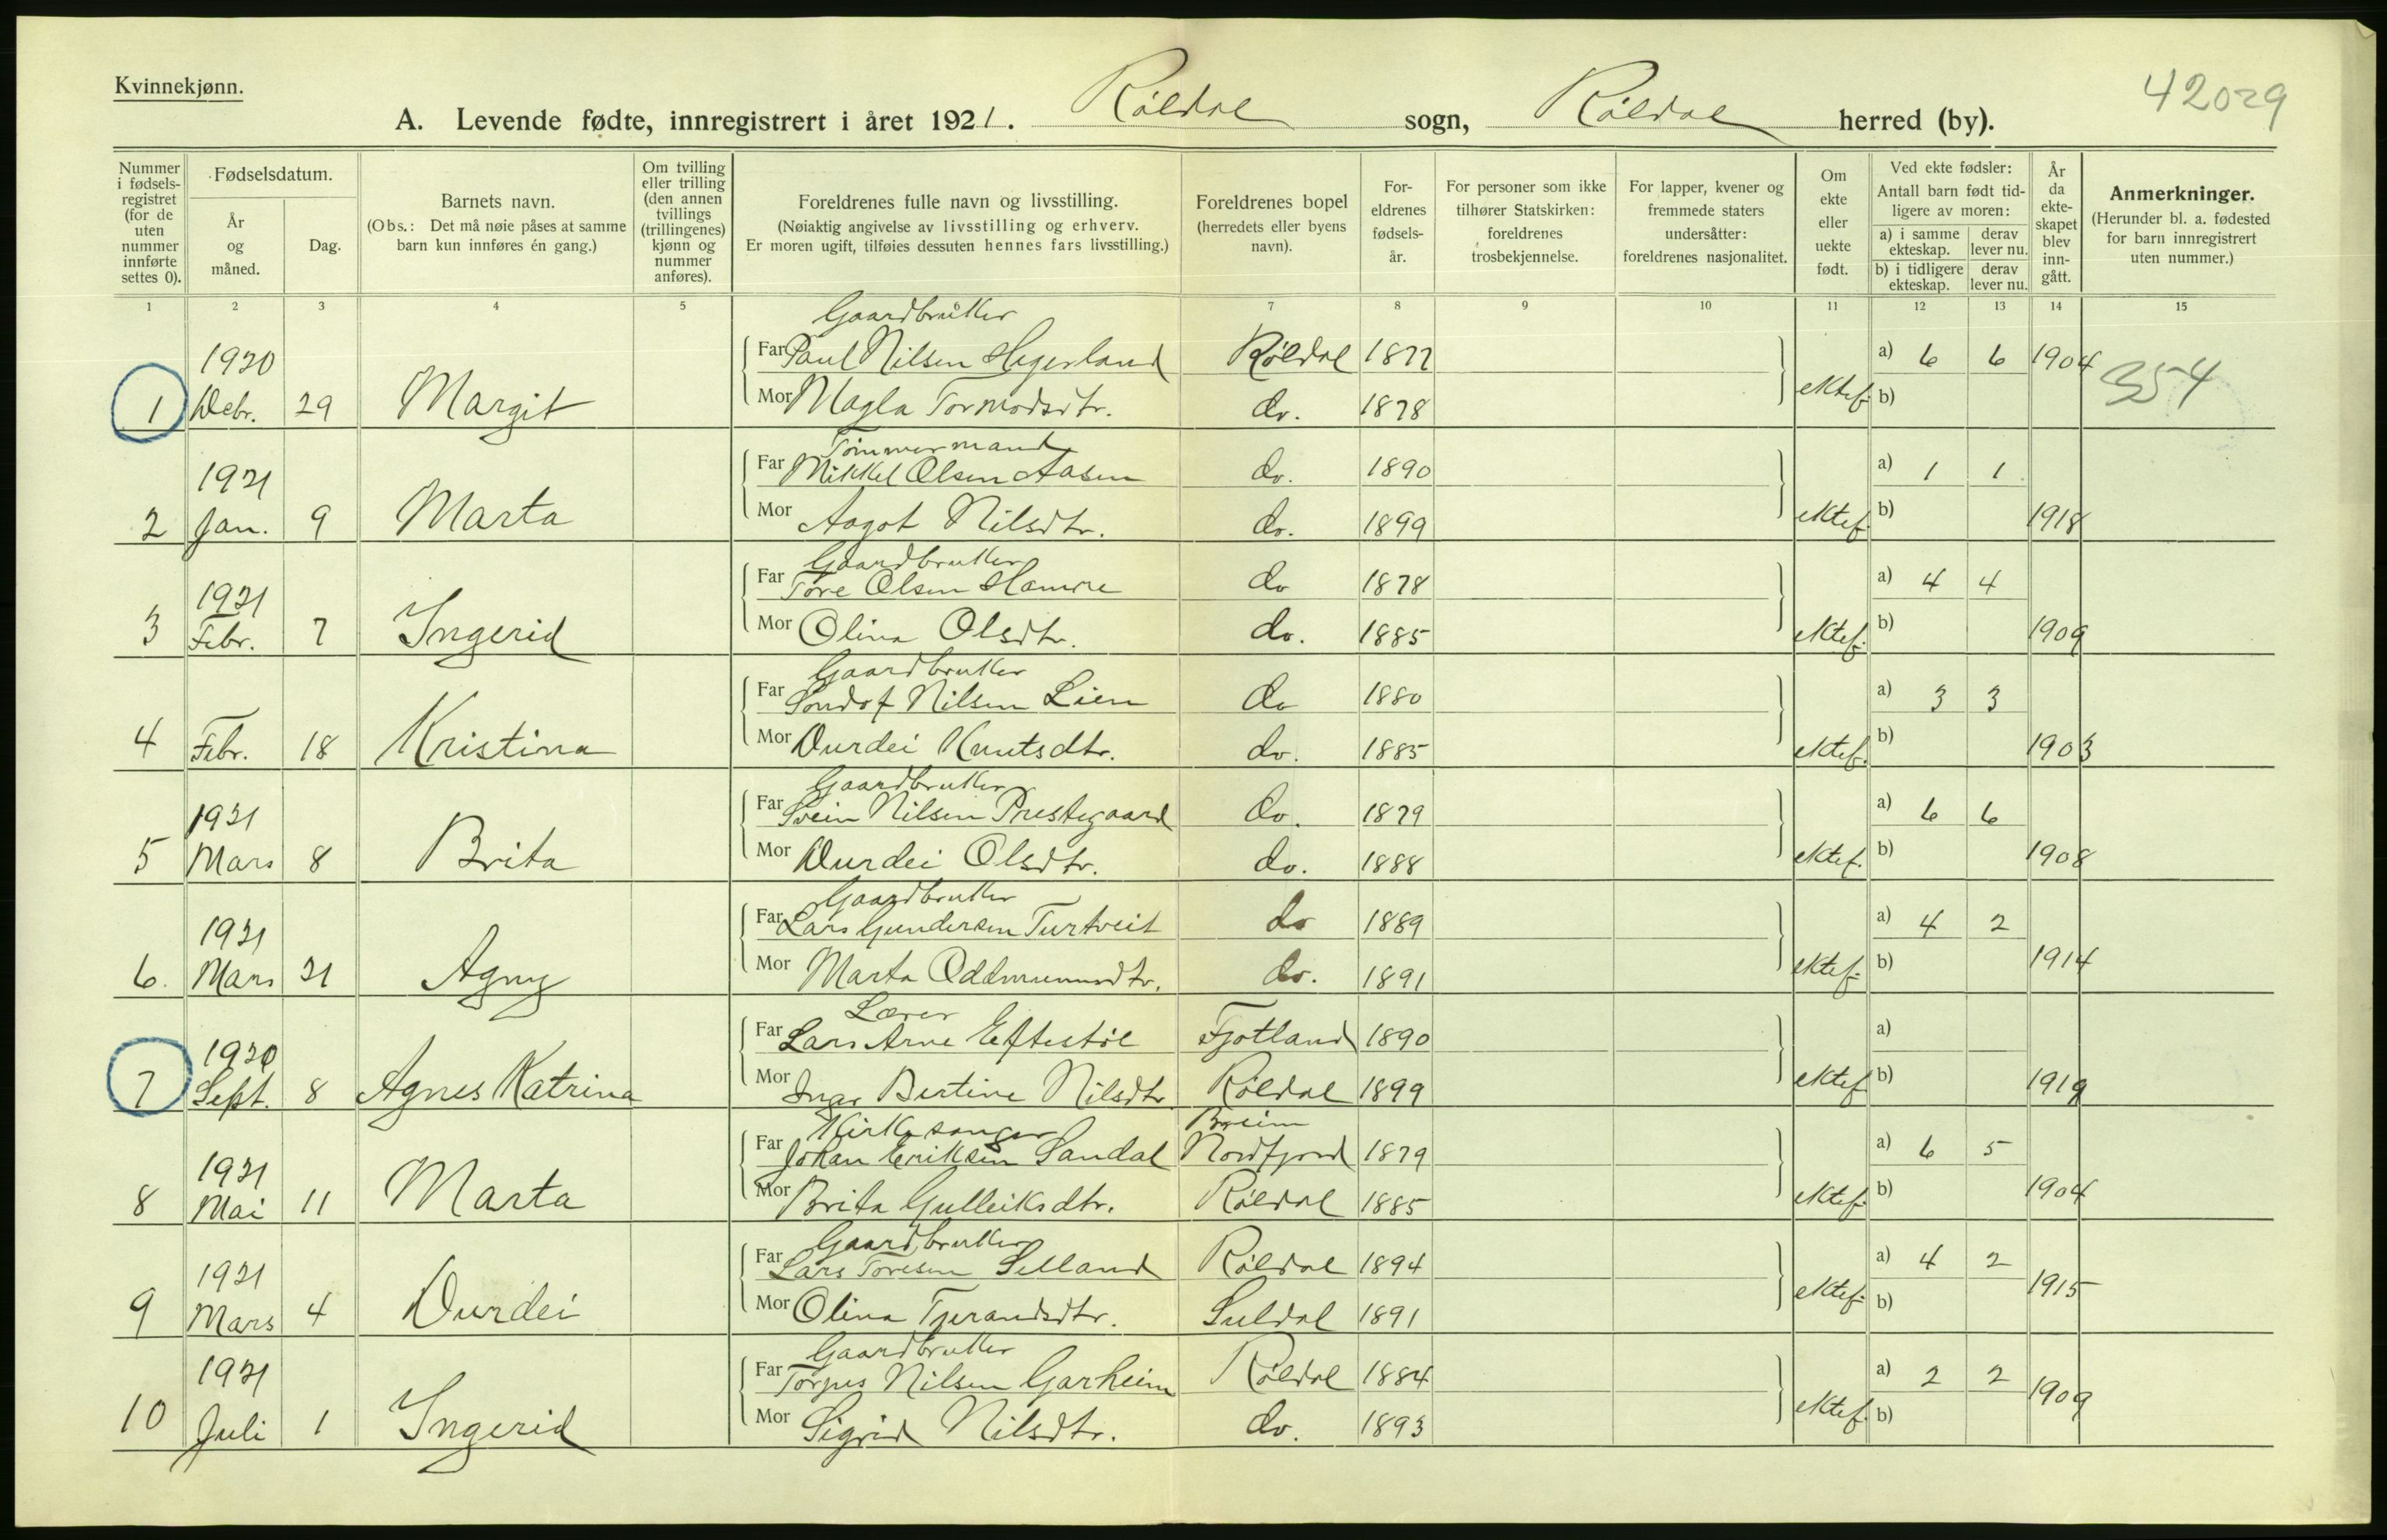 Kvinnekjønn.
42029
A. Levende fødte, innregistrert i året 1921. Røldal sogn, Røldal herred (by).
Nummer i fødsels-registret (for de uten nummer innførte settes 0).
Fødselsdatum.
År og måned.
Dag.
Barnets navn.
(Obs.: Det må nøie påses at samme barn kun innføres én gang.)
Om tvilling eller trilling (den annen tvillings (trillingenes) kjønn og nummer anføres).
Foreldrenes fulle navn og livsstilling.
(Nøiaktig angivelse av livsstilling og erhverv. Er moren ugift, tilføies dessuten hennes fars livsstilling.)
Foreldrenes bopel (herredets eller byens navn).
For-eldrenes fødsels-år.
For personer som ikke tilhører Statskirken: foreldrenes trosbekjennelse.
For lapper, kvener og fremmede staters undersåtter: foreldrenes nasjonalitet.
Om ekte eller uekte født.
Ved ekte fødsler: Antall barn født tid-ligere av moren:
a) i samme ekteskap. derav lever nu.
b) i tidligere ekteskap. derav lever nu.
År da ekte-skapet blev inn-gått.
Anmerkninger.
(Herunder bl. a. fødested for barn innregistrert uten nummer.)
1 2 3 4 5 7 8 9 10 11 12 13 14 15
Gaardbruker
1920 Far Paul Nilsen Hegerland Røldal 1877 a) 6 6 1904
1 Debr. 29 Margit Mor Magla Tormodsdtr. do. 1878 ektef. b) 354
Tømmermand
1921 Far Mikkel Olsen Aasen do. 1890 a) 1 1
2 Jan. 9 Marta Mor Aagot Nilsdtr. do. 1899 ektef. b) 1918
Gaardbruker
1921 Far Tore Olsen Hamre do 1878 a) 4 4
3 Febr. 7 Ingerid Mor Olina Olsdtr. do. 1885 ektef. b) 1909
Gaardbruker
Far Sondof Nilsen Lien do 1880 a) 3 3
4 Febr. 18 Kristina Mor Durdei Knutsdtr. do. 1885 ektef. b) 1903
Gaardbruker
1921 Far Svein Nilsen Prestegaard do. 1879 a) 6 6
5 Mars 8 Brita Mor Durdei Olsdtr. do. 1888 ektef. b) 1908
Gaardbruker
1921 Far Lars Gundersen Turtveit do 1889 a) 4 2
6. Mars 21 Agny Mor Marta Oddmunnsdtr. do. 1891 ektef. b) 1914
Lærer
1920 Far Lars Arne Eftestøl Fjotland 1890 a)
7 Sept. 8 Agnes Katrina Mor Inga Bertine Nilsdtr Røldal 1899 ektef. b) 1919
Kirkesanger Breim
1921 Far Johan Eriksen Sandal Nordfjord 1879 a) 6 5
8 Mai 11 Marta Mor Brita Gulleiksdtr. Røldal 1885 ektef. b) 1904
Gaardbruker
1921 Far Lars Toresen Selland Røldal 1894 a) 4 2
9 Mars 4 Durdei Mor Olina Tjerandsdtr. Suldal 1891 ektef. b) 1915
Gaardbruker
1921 Far Torjus Nilsen Garheim Røldal 1884 a) 2 2
10 Juli 1 Ingerid Mor Sigrid Nilsdtr. do. 1893 ektef. b) 1909